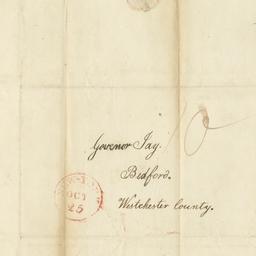 Governor Jay.
Bedford.
Westchester County.
OCT
25